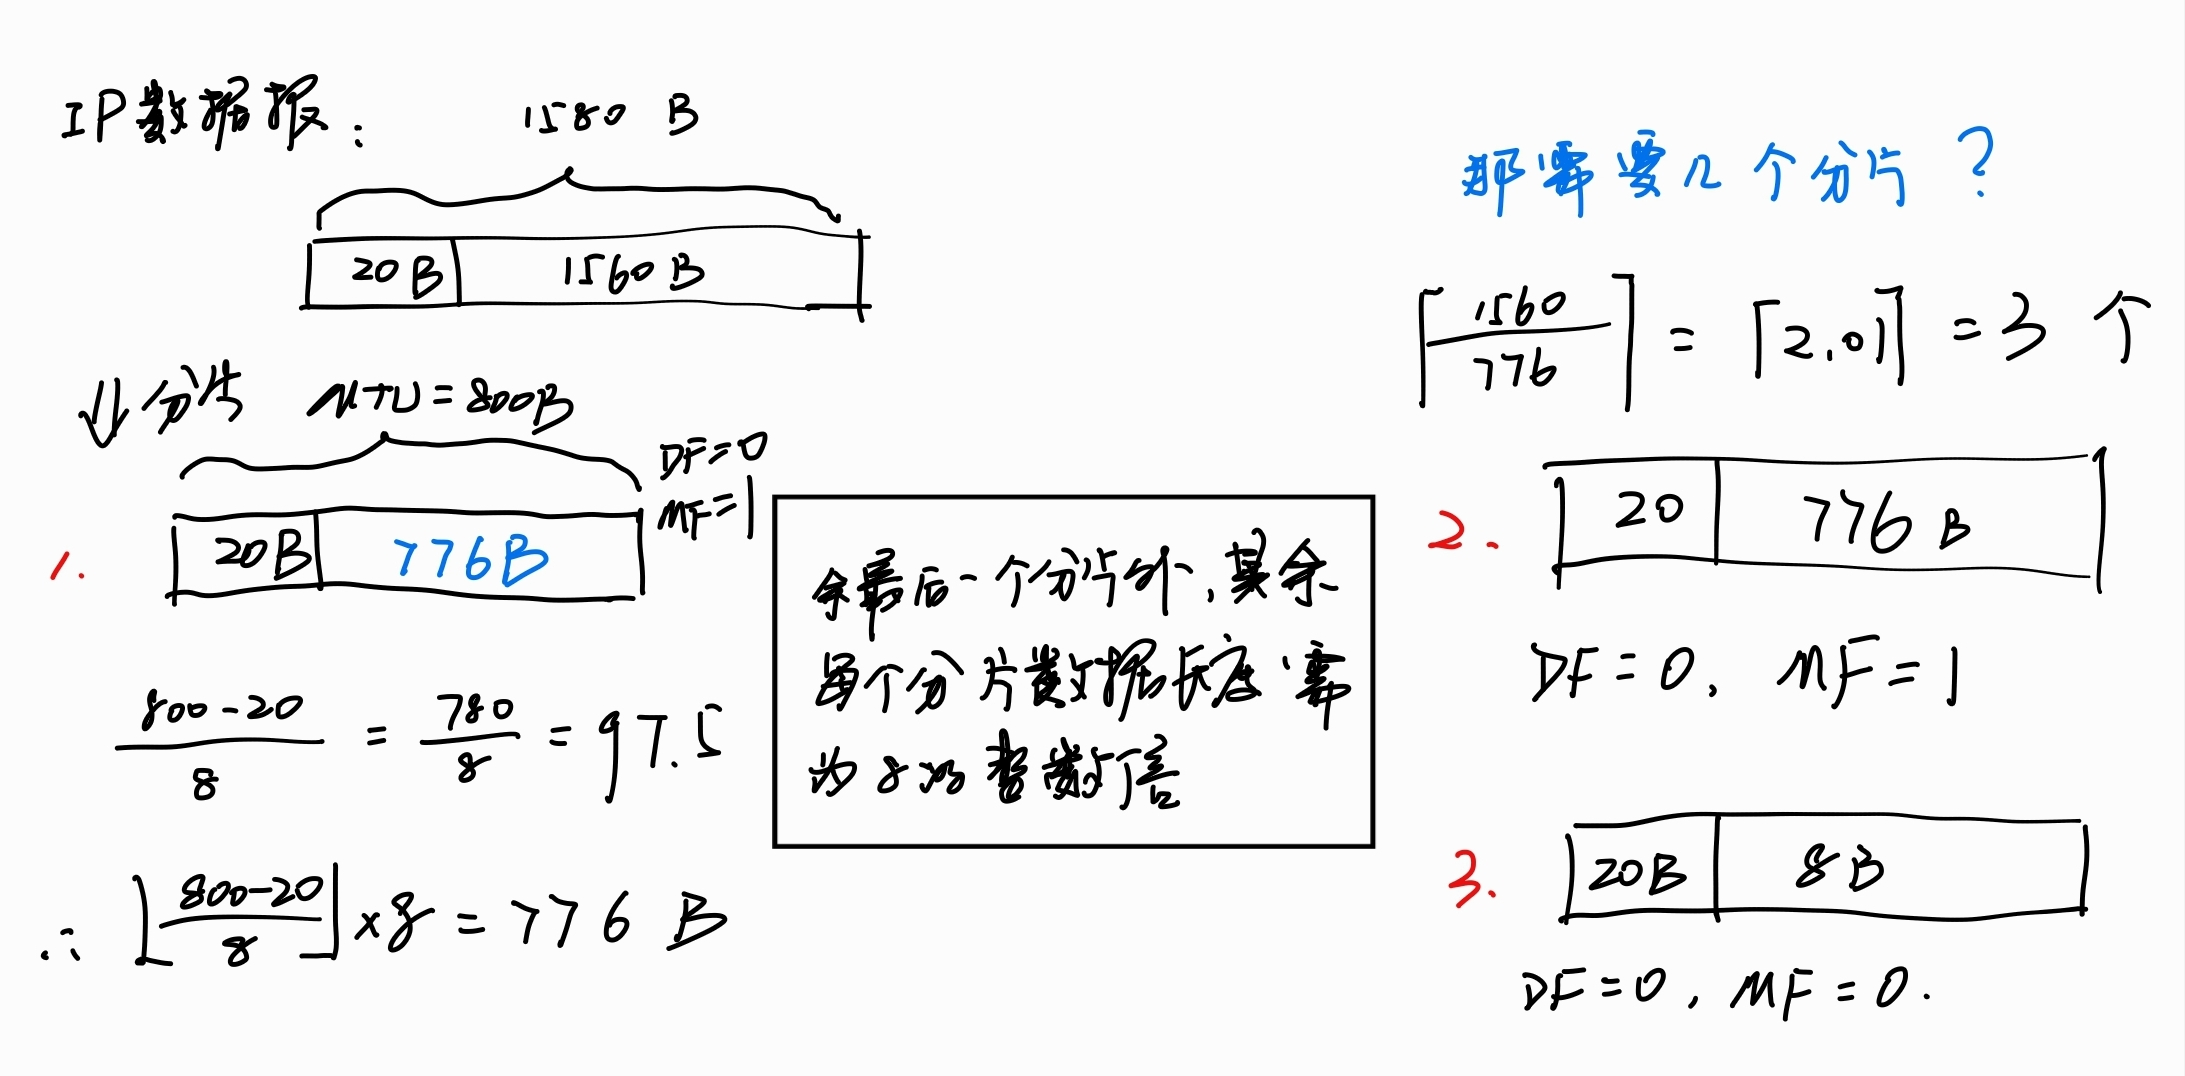 IP数据报：
1580 B
20B 1560 B
↓分片 MTU=800B
DF=0
MF=1
1. 20B 776B
800-20/8 = 780/8 = 97.5
∴ ⌊800-20/8⌋×8 = 776 B
余最后一个分片外，其余
每个分片数据长度需
为8的整数倍
那需要几个分片？
⌈1560/776⌉ = ⌈2.01⌉ = 3 个
2. 20 776 B
DF=0, MF=1
3. 20B 8B
DF=0, MF=0.